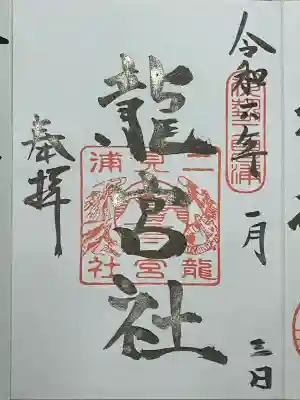 令和六年一月三日
龍宮社
奉拝
二見浦
龍宮社